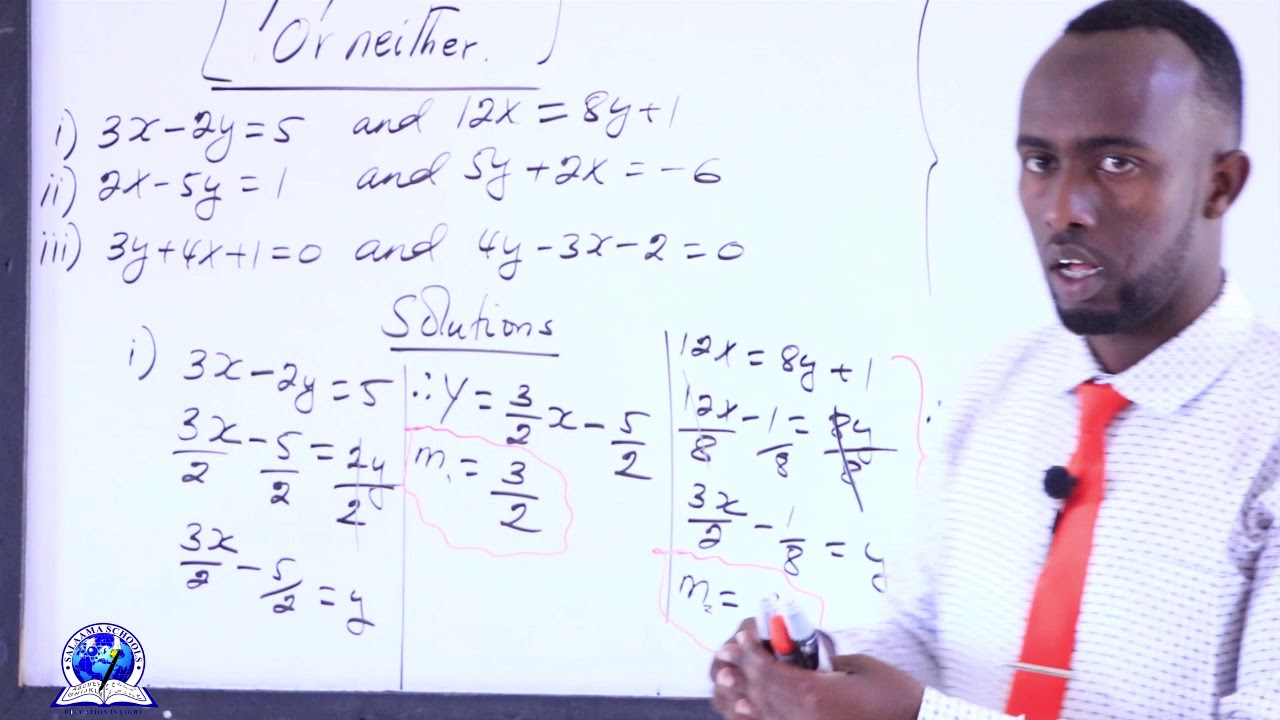 Or neither.
i) 3x-2y=5 and 12x=8y+1
ii) 2x-5y=1 and 5y+2x=-6
iii) 3y+4x+1=0 and 4y-3x-2=0
Solutions
i) 3x-2y=5
3x/2 - 5/2 = 2y/2
3x/2 - 5/2 = y
∴ y = 3/2 x - 5/2
m₁ = 3/2
12x = 8y+1
12x/8 - 1/8 = 8y/8
3x/2 - 1/8 = y
m₂ =
SALAAMA SCHOOLS
EDUCATION IS LIGHT